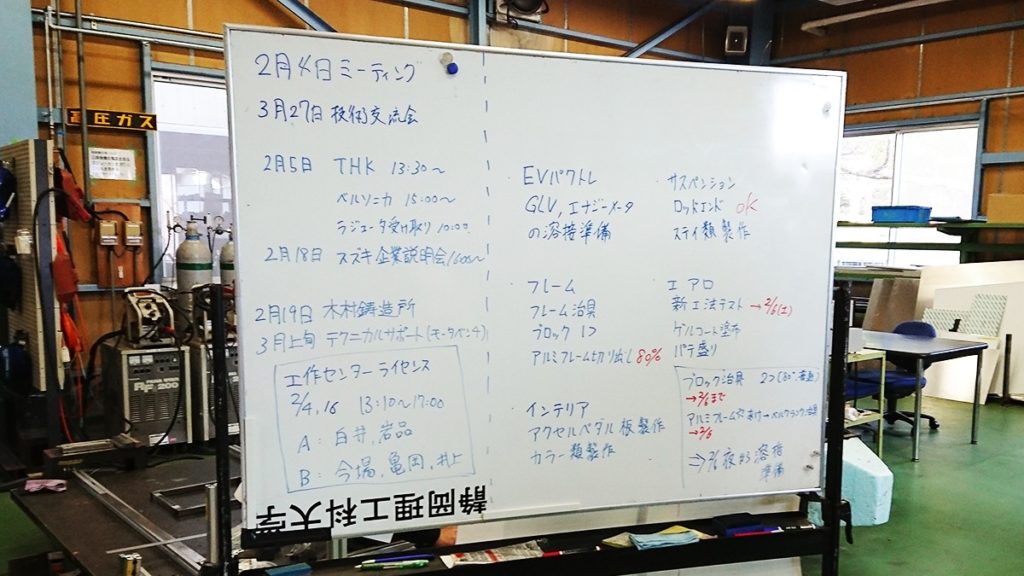 2月4日 ミーティング
3月27日 技術交流会
2月5日 THK 13:30〜
ベルソニカ 15:00〜
ラジエータ受け取り 10:00
2月18日 スズキ企業説明会 1600〜
2月19日 木村鋳造所
3月上旬 テクニカルサポート(モータベンチ)
工作センターライセンス
2/4,16 13:10〜17:00
A:白井,岩品
B:今場,亀岡,井上
EVパクトレ
GLV,エナジーメータ
の溶接準備
フレーム
フレーム治具
ブロック 1つ
アルミフレーム切り出し 80%
インテリア
アクセルペダル板製作
カラー類製作
サスペンション
ロッドエンド OK
ステイ類製作
エアロ
新工法テスト →2/6(土)
ゲルコート塗布
パテ盛り
ブロック治具 2つ
→2/6まで
アルミフレーム
→2/6
⇒2/6夜から溶接
準備
静岡理工科大学
高圧ガス
PANA STAR
RF 200